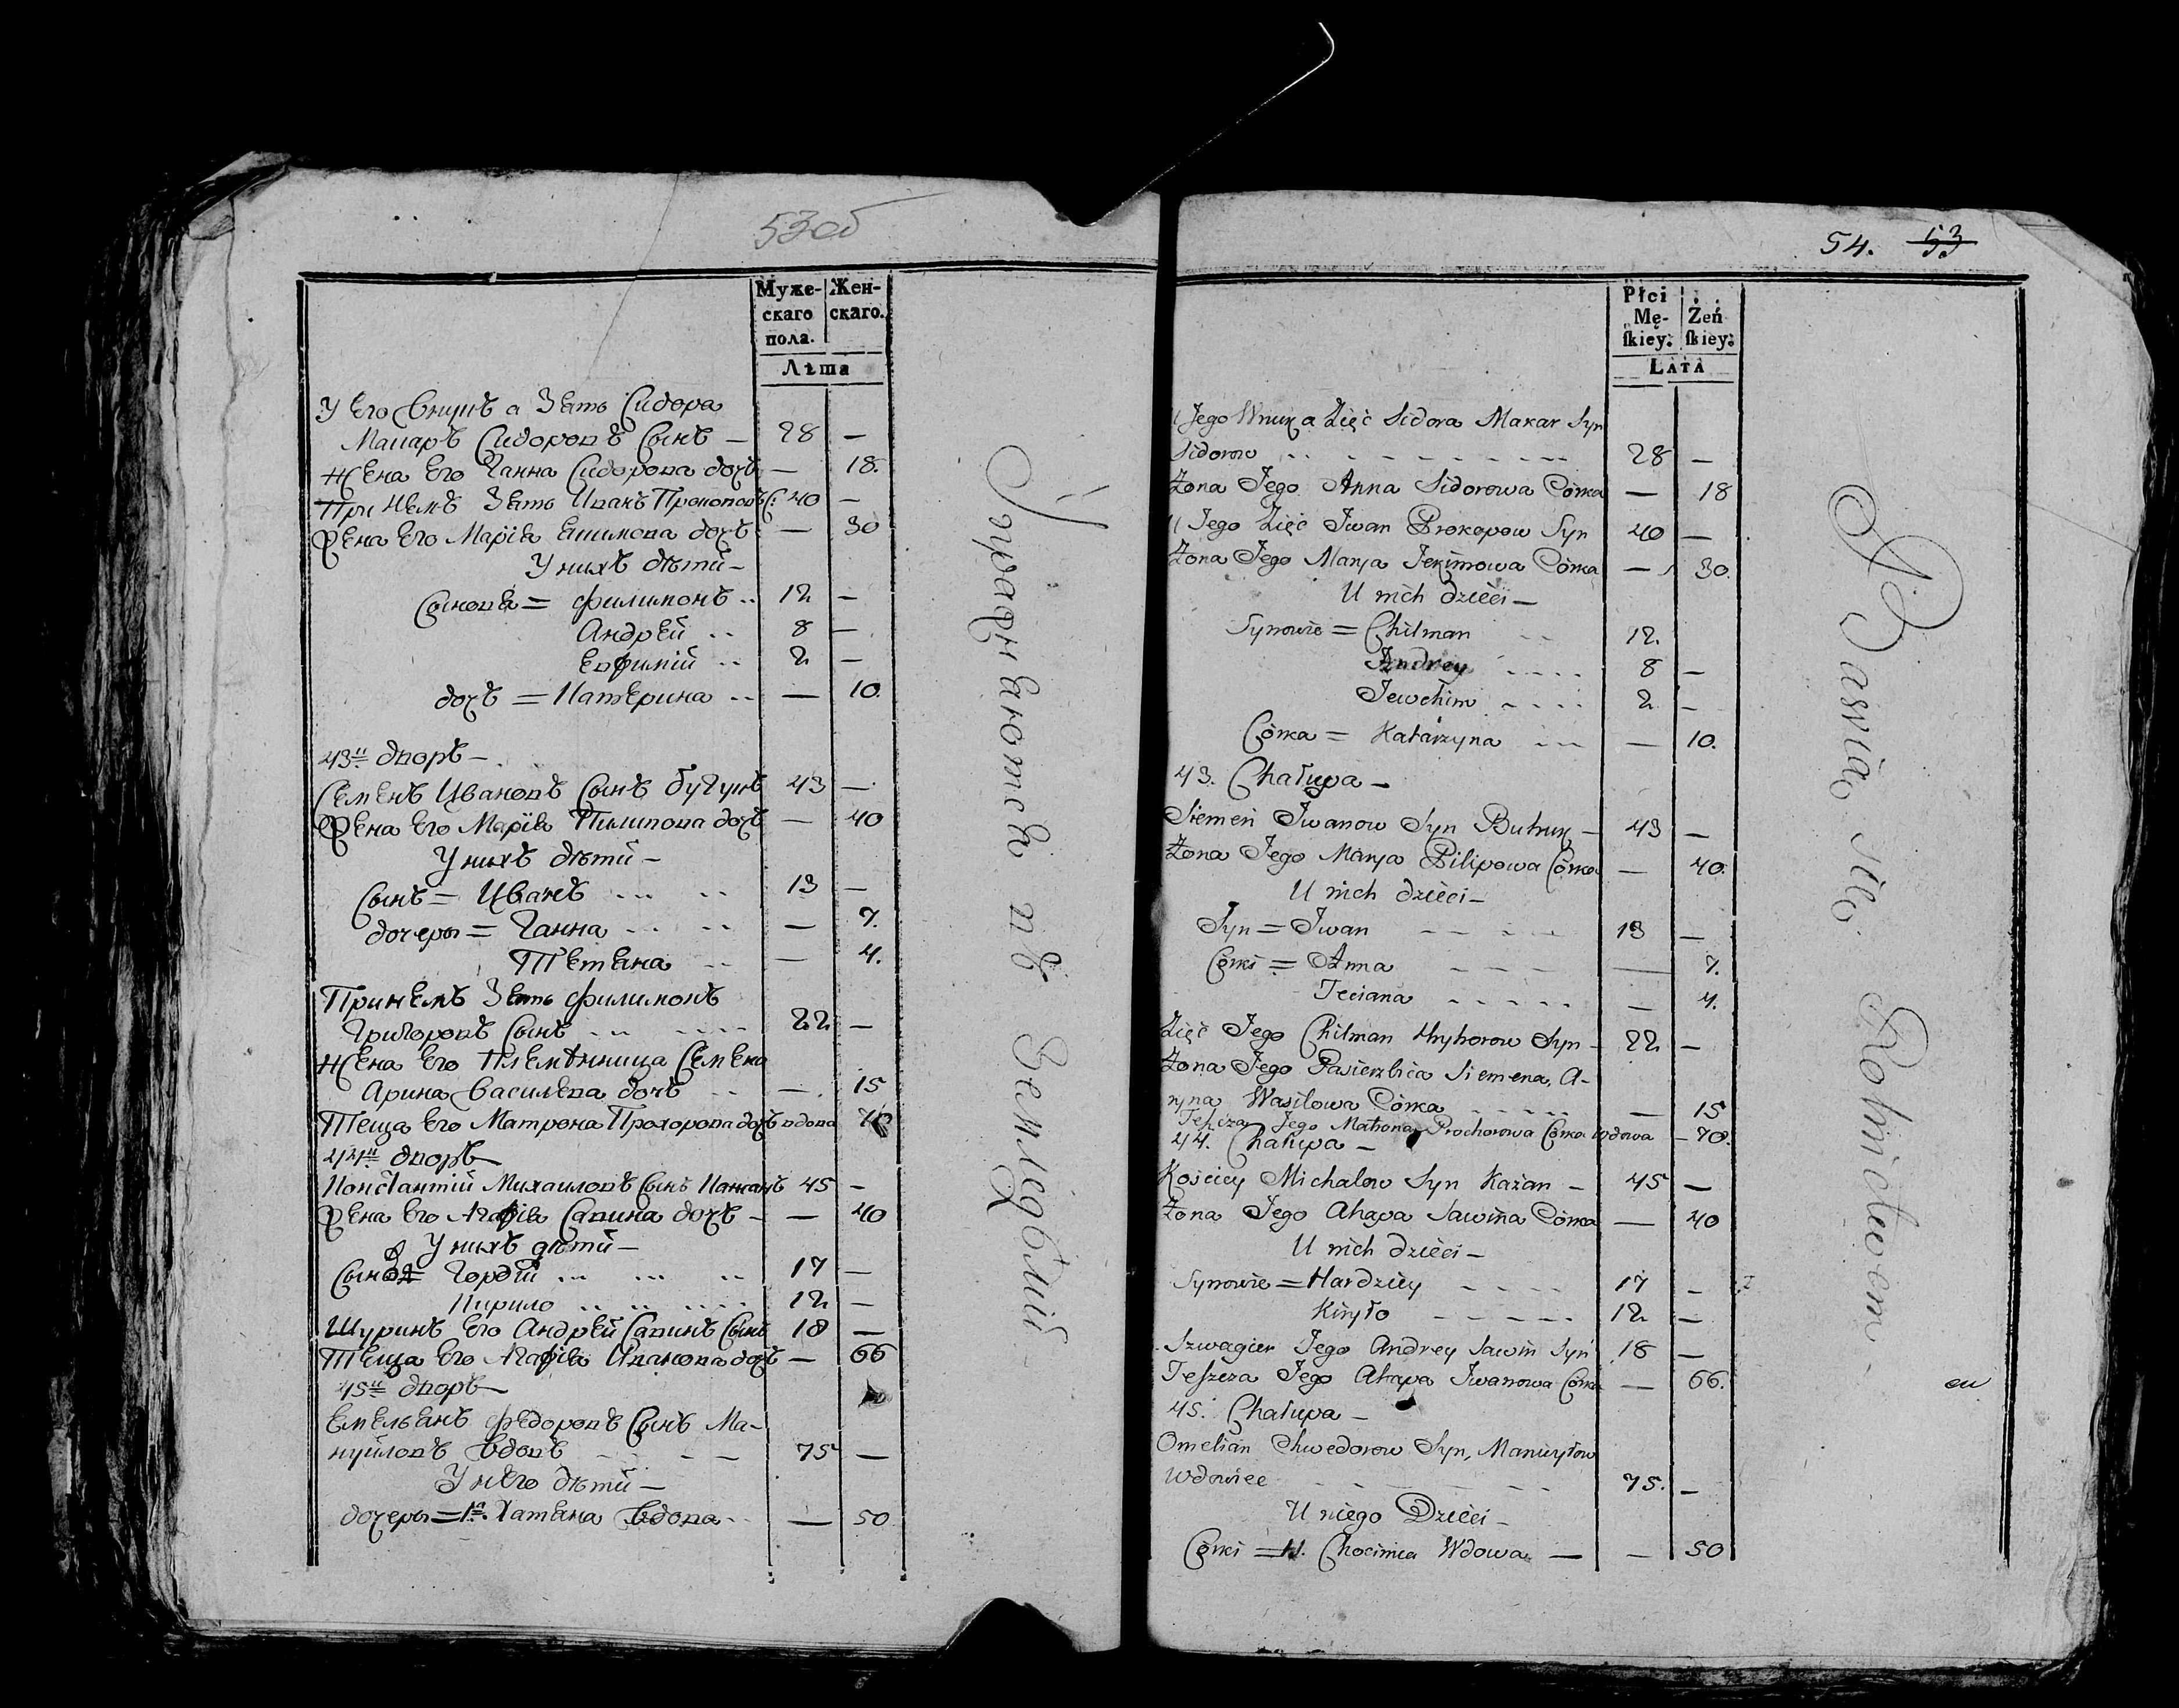 53об
Муже- Жен-
скаго скаго.
пола.
Лѣта
У Его Внукъ а Зять Сидора
Макаръ Сидоровъ Сынъ — 28 —
Жена Его Ганна Сидорова дочь — 18.
При Немъ Зять Иванъ Прокоповъ С: 40 —
Жена Его Марія Екимова дочь — 30
У нихъ дѣти —
Сыновя = Филимонъ .. 12 —
Андрей .. 8 —
Евфимій .. 2 —
дочь = Катерина .. — 10.
43й дворъ —
Семенъ Ивановъ Сынъ Бугукъ 43 —
Жена Его Марія Пилипова дочь — 40
У нихъ дѣти —
Сынъ = Иванъ 13 —
дочеры = Ганна — 7.
Тетяна — 4.
При немъ Зять Филимонъ
Григоровъ Сынъ 22 —
Жена Его Племѣнница Семена
Арина Василева дочь — 15
Теща Его Матрона Прохорова дочь вдова 70
44й дворъ —
Константій Михаиловъ Сынъ Кажанъ 45 —
Жена Его Агафія Савина дочь — — 40
У нихъ дѣти —
Сыновя = Гордій 17 —
Кирило 12 —
Шуринъ Его Андрей Савинъ Сынъ 18 —
Теща Его Агафія Иванова дочь — 66
45й дворъ —
Емельянъ Федоровъ Сынъ Ма-
нуйловъ Вдовъ 75 —
У него дѣти —
дочеры = 1я. Хатяна Вдова — 50
Упражняются въ Земледѣлій —
54. 53
Płci
Mę- Żeń
ſkiey: ſkiey:
LATA
U Jego Wnuk a Zięć Sidora Makar Syn
Sidorow 28 —
Żona Jego Anna Sidorowa Córka — 18
U Jego Zięć Jwan Prokopow Syn 40 —
Żona Jego Marya Jekimowa Córka — 30.
U nich dzieci —
Synowie = Chilman 12.
Andrey 8 —
Jewchim 2 —
Córka = Katarzyna — 10.
43. Chałupa —
Siemen Jwanow Syn Buhuk — 43 —
Żona Jego Marya Pilipowa Córka — 40.
U nich dzieci —
Syn = Jwan 13 —
Córki = Anna — 7.
Teciana — 4.
Zięć Jego Chilman Hryhorow Syn — 22 —
Żona Jego Pasierzbica Siemena, A-
ryna Wasilowa Córka — 15
Teſzcza Jego Matrona Prochorowa Córka Wdowa — 70.
44. Chałupa —
Kościey Michalow Syn Każan — 45 —
Żona Jego Ahapa Sawina Córka — 40
U nich dzieci —
Synowie = Hardziey 17 —
Kiryło 12 —
Szwagier Jego Andrey Sawin Syn 18 —
Teſzcza Jego Ahapa Jwanowa Córka — 66.
45. Chałupa —
Omelian Chwedorow Syn, Manuyłow
Wdowiec 75. —
U niego Dzieci —
Córki = 1. Chocimia Wdowa — — 50
Bawią się Rolnictwem —